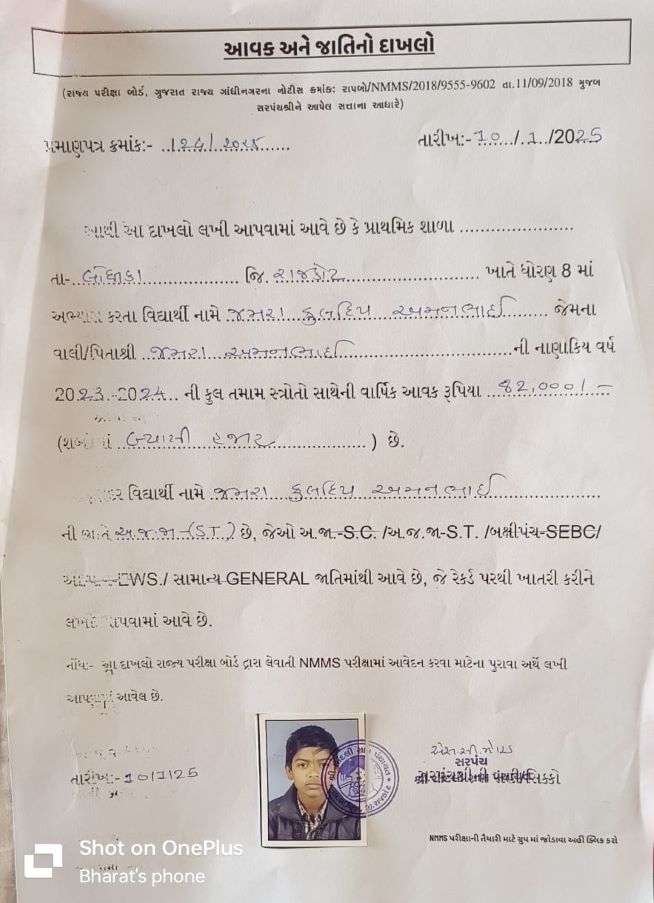 આવક અને જાતિનો દાખલો
(રાજ્ય પરીક્ષા બોર્ડ, ગુજરાત રાજ્ય ગાંધીનગરના નોટીસ ક્રમાંક: રાપબો/NMMS/2018/9555-9602 તા.11/09/2018 મુજબ
સરપંચશ્રીને આપેલ સત્તાના આધારે)
પ્રમાણપત્ર ક્રમાંક:- ..124/ ૨૦૨૫......
તારીખ:-10../.1../2025
આથી આ દાખલો લખી આપવામાં આવે છે કે પ્રાથમિક શાળા ........................
તા- લોધીકા .................. જિ. રાજકોટ ........................ ખાતે ધોરણ 8 માં
અભ્યાસ કરતા વિદ્યાર્થી નામે જમરા કુલદિપ અમનભાઈ ........ જેમના
વાલી/પિતાશ્રી જમરા અમનભાઈ ........................ ની નાણાકિય વર્ષ
2023-2024.. ની કુલ તમામ સ્ત્રોતો સાથેની વાર્ષિક આવક રૂપિયા 82,000/-
(શબ્દોમાં બ્યાસી હજાર .................. ) છે.
વિદ્યાર્થી નામે જમરા કુલદિપ અમનભાઈ ..................
ની અ.જ.જા-(S.T.) છે, જેઓ અ.જા.-S.C. /અ.જ.જા-S.T. /બક્ષીપંચ-SEBC/
EWS./ સામાન્ય GENERAL જાતિમાંથી આવે છે, જે રેકર્ડ પરથી ખાતરી કરીને
લખી આપવામાં આવે છે.
નોંધ:- આ દાખલો રાજ્ય પરીક્ષા બોર્ડ દ્વારા લેવાતી NMMS પરીક્ષામાં આવેદન કરવા માટેના પુરાવા અર્થે લખી
આપવામાં આવેલ છે.
તારીખ:-10/1/25
સરપંચ
સિક્કો
NMMS પરીક્ષાની તૈયારી માટે ગ્રુપ માં જોડાવા અહીં ક્લિક કરો
Shot on OnePlus
Bharat's phone